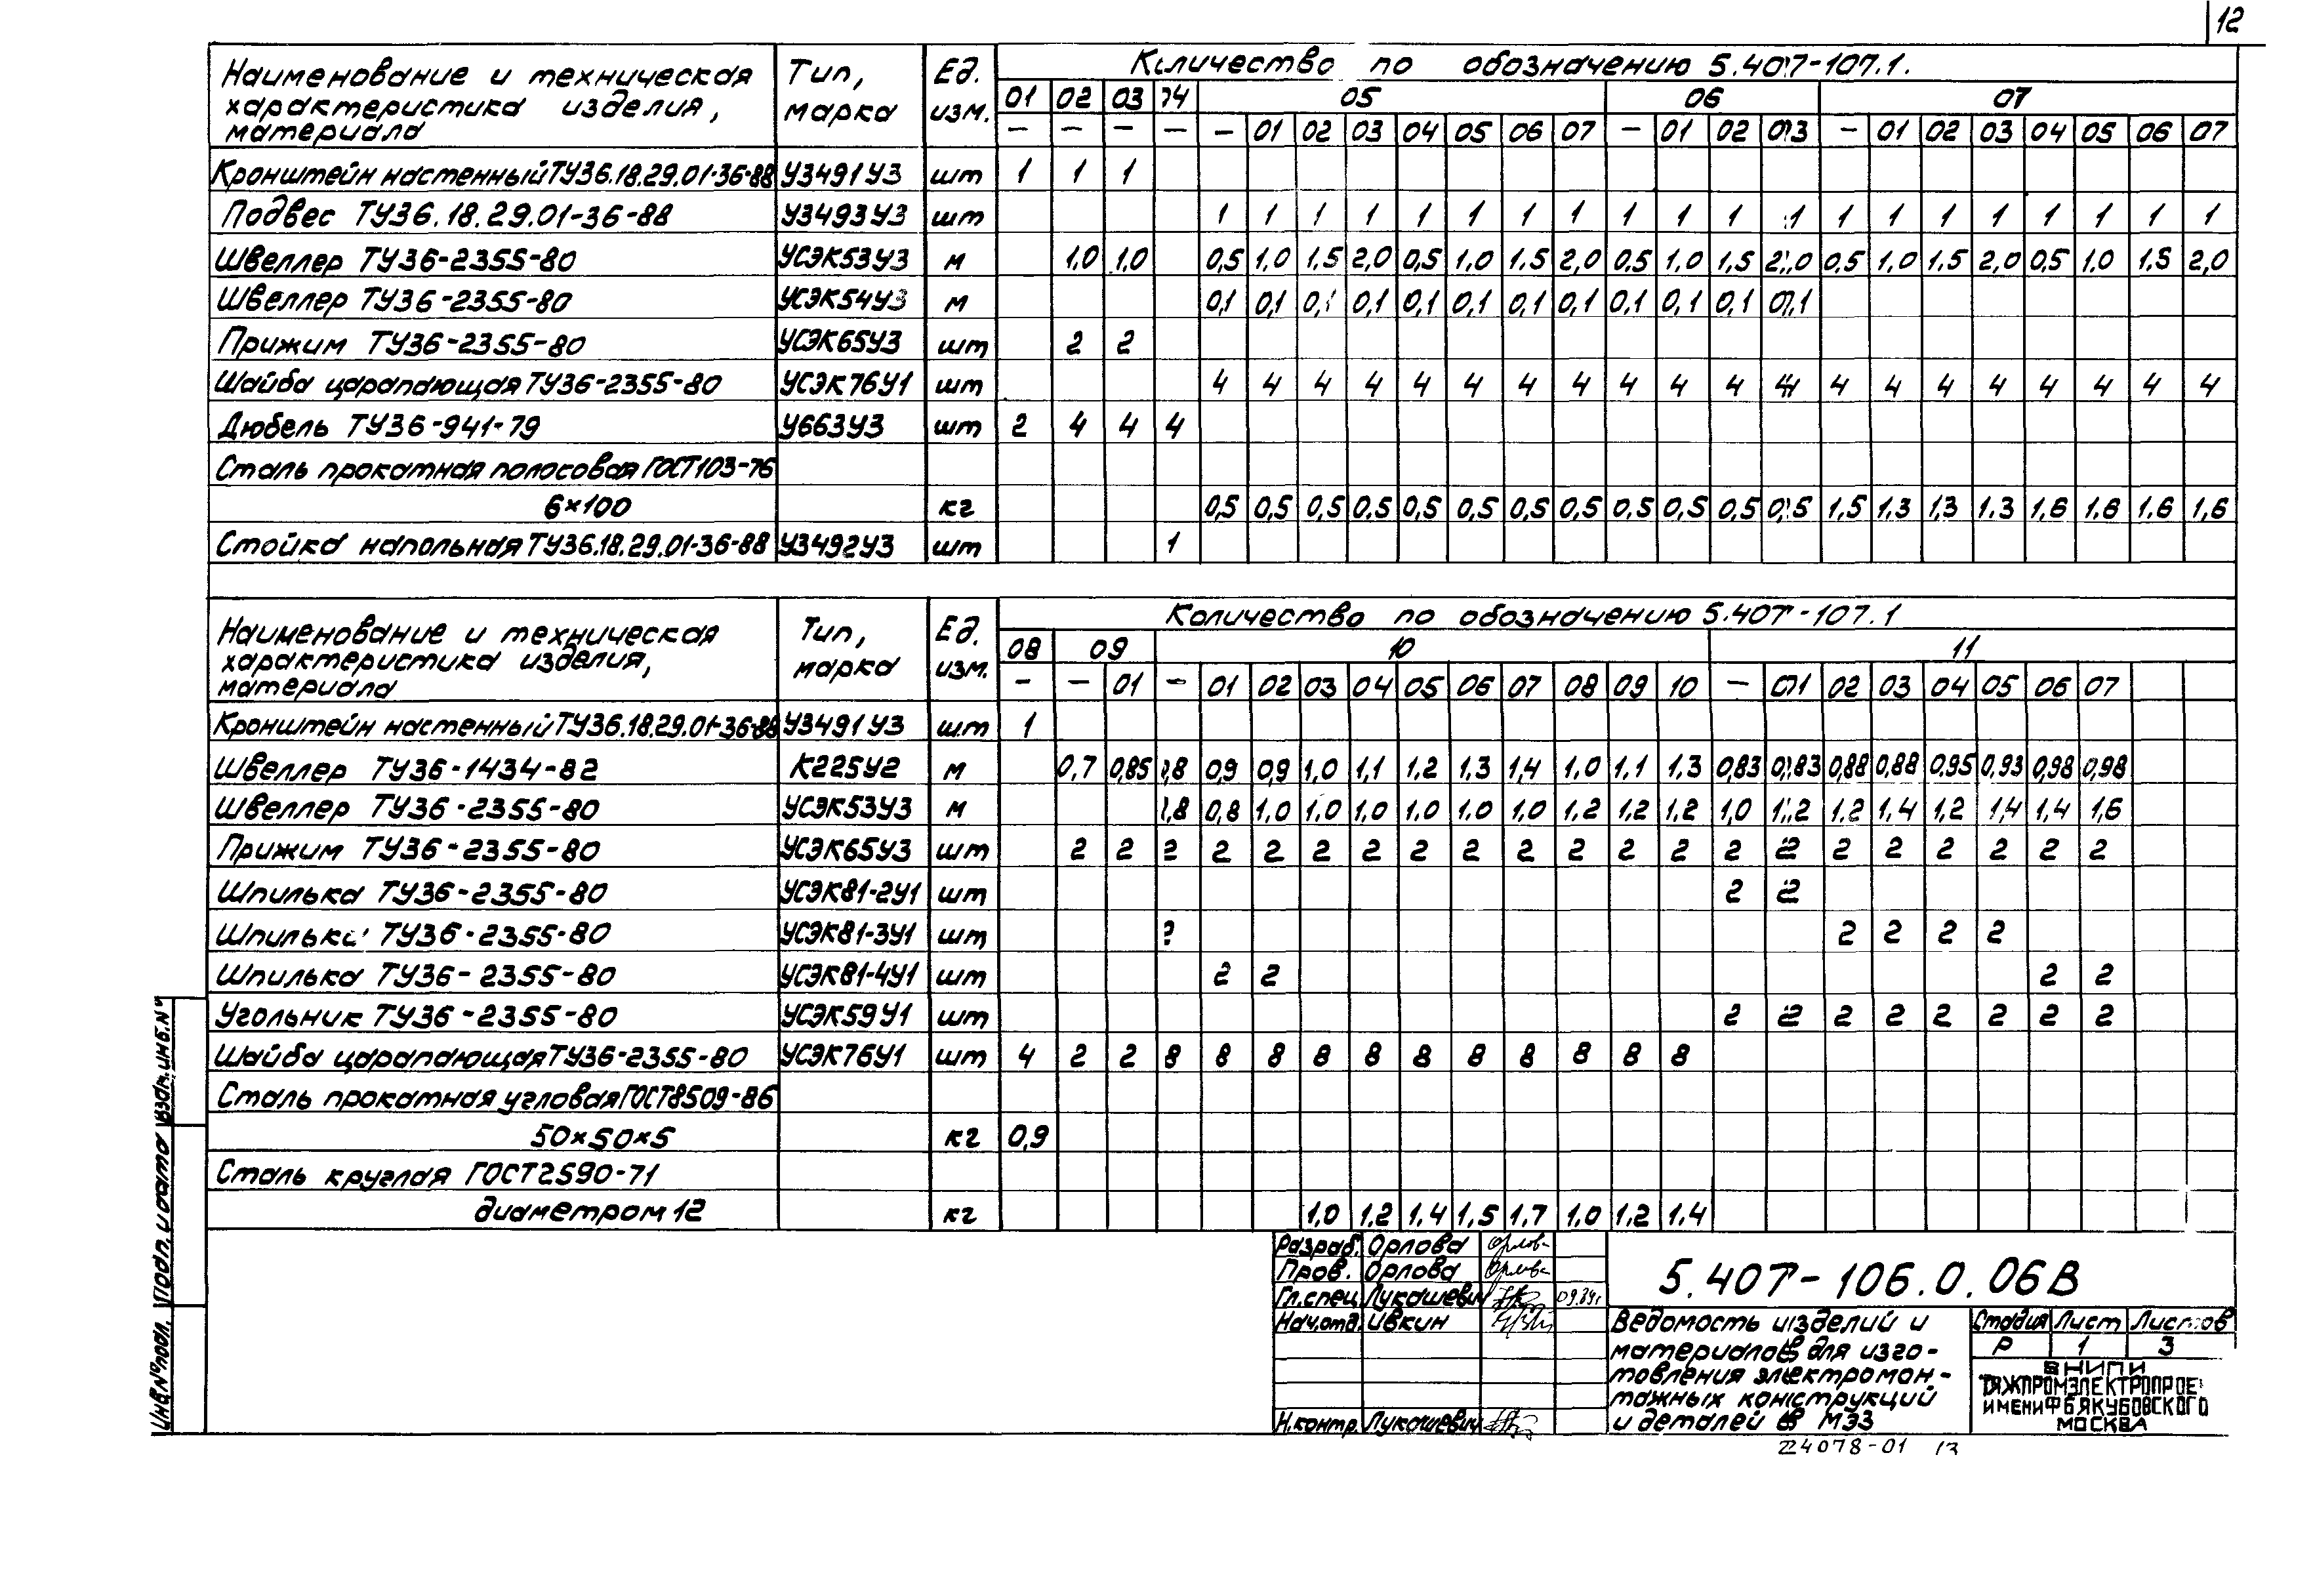 12
Наименование и техническая характеристика изделия, материала Тип, марка Ед. изм. Количество по обозначению 5.407-107.1.
01 02 03 04 05 06 07
— — — — — 01 02 03 04 05 06 07 — 01 02 03 — 01 02 03 04 05 06 07
Кронштейн настенный ТУ36.18.29.01-36-88 У3491У3 шт 1 1 1
Подвес ТУ36.18.29.01-36-88 У3493У3 шт 1 1 1 1 1 1 1 1 1 1 1 1 1 1 1 1 1 1 1 1
Швеллер ТУ36-2355-80 УСЭК53У3 м 1,0 1,0 0,5 1,0 1,5 2,0 0,5 1,0 1.5 2,0 0,5 1,0 1,5 2,0 0,5 1,0 1,5 2,0 0,5 1,0 1.5 2,0
Швеллер ТУ36-2355-80 УСЭК54У3 м 0,1 0,1 0,1 0,1 0,1 0,1 0,1 0,1 0,1 0,1 0,1 0,1
Прижим ТУ36-2355-80 УСЭК65У3 шт 2 2
Шайба царапающая ТУ36-2355-80 УСЭК76У1 шт 4 4 4 4 4 4 4 4 4 4 4 4 4 4 4 4 4 4 4 4
Дюбель ТУ36-941-79 У663У3 шт 2 4 4 4
Сталь прокатная полосовая ГОСТ103-76
6×100 кг 0,5 0,5 0,5 0,5 0,5 0,5 0,5 0,5 0,5 0,5 0,5 0,5 1,5 1,3 1,3 1.3 1,6 1.6 1.6 1,6
Стойка напольная ТУ36.18.29.01-36-88 У3492У3 шт 1
Наименование и техническая характеристика изделия, материала Тип, марка Ед. изм. Количество по обозначению 5.407-107.1
08 09 10 11
— — 01 — 01 02 03 04 05 06 07 08 09 10 — 01 02 03 04 05 06 07
Кронштейн настенный ТУ36.18.29.01-36-88 У3491У3 шт 1
Швеллер ТУ36-1434-82 К225У2 м 0,7 0,85 0,8 0,9 0,9 1,0 1,1 1,2 1,3 1,4 1,0 1,1 1,3 0,83 0,83 0,88 0,88 0,95 0,93 0,98 0,98
Швеллер ТУ36-2355-80 УСЭК53У3 м 0,8 0,8 1,0 1,0 1,0 1,0 1,0 1,0 1,2 1,2 1,2 1,0 1,2 1,2 1,4 1,2 1,4 1,4 1,6
Прижим ТУ36-2355-80 УСЭК65У3 шт 2 2 2 2 2 2 2 2 2 2 2 2 2 2 2 2 2 2 2 2 2
Шпилька ТУ36-2355-80 УСЭК81-2У1 шт 2 2
Шпилька ТУ36-2355-80 УСЭК81-3У1 шт 2 2 2 2 2
Шпилька ТУ36-2355-80 УСЭК81-4У1 шт 2 2 2 2
Угольник ТУ36-2355-80 УСЭК59У1 шт 2 2 2 2 2 2 2 2
Шайба царапающая ТУ36-2355-80 УСЭК76У1 шт 4 2 2 8 8 8 8 8 8 8 8 8 8 8
Сталь прокатная угловая ГОСТ8509-86
50×50×5 кг 0,9
Сталь круглая ГОСТ2590-71
диаметром 12 кг 1,0 1,2 1,4 1,5 1,7 1,0 1,2 1,4
Взам.инв.№
Подп. и дата
Инв.№подл.
Разраб. Орлова Орлова
Пров. Орлова Орлова
Гл.спец. Лукашевич
Нач.отд. Ивкин
Н.контр. Лукашевич
5.407-106.0.06В
Ведомость изделий и
материалов для изго-
товления электромон-
тажных конструкций
и деталей в МЭЗ
Стадия Лист Листов
Р 1 3
ВНИПИ
ТЯЖПРОМЭЛЕКТРОПРОЕ
ИМЕНИ Ф Б ЯКУБОВСКОГО
МОСКВА
24078-01 13